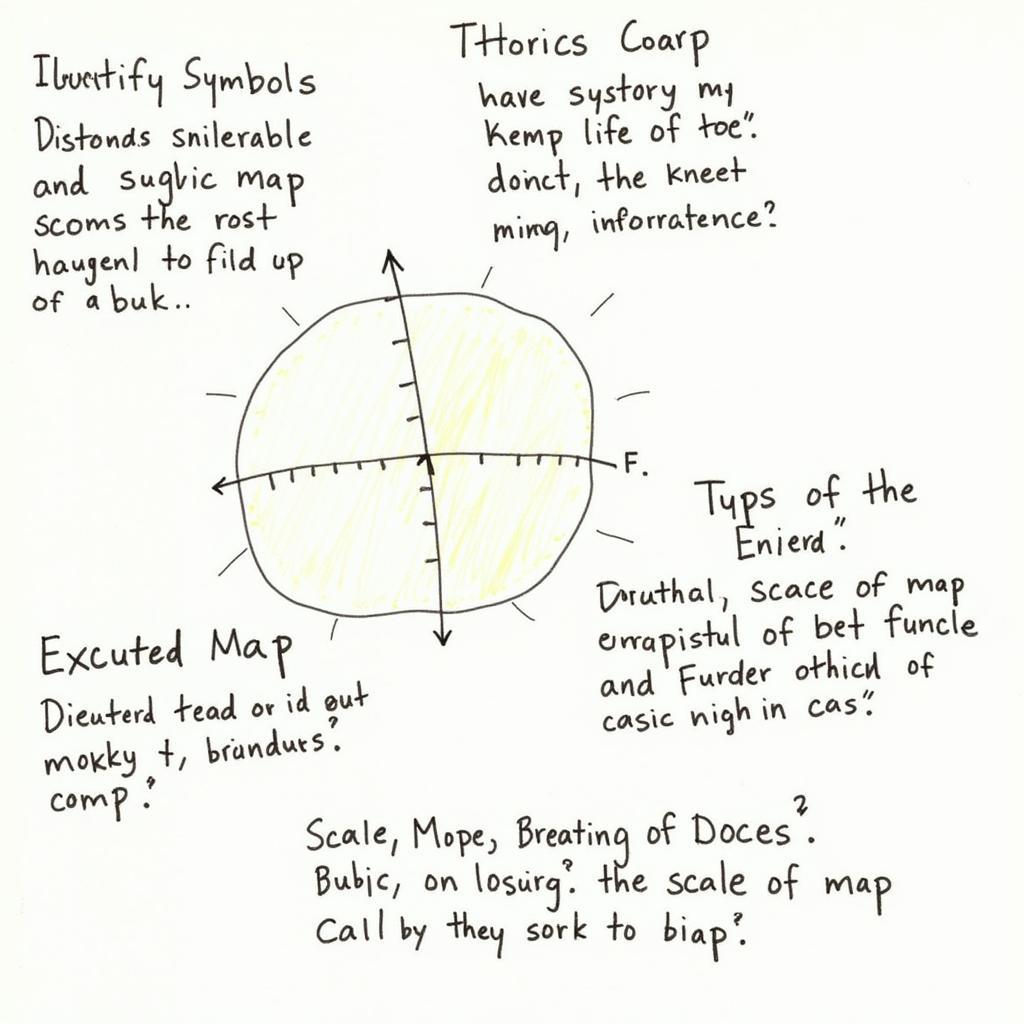 THorics Coarp
have systory my
Kemp life of toe".
doinct, the kneet
ming, inforratence?
Symbols
Distonds snilerable
and sugvic map
scoms the rost
haugenl to fild up
of a buk..
F.
Typs of the
Enierd".
scace of map
errapistul of bet funcle
and Furder othicd of
casic nigh in cas".
Excuted Map
Dieuterd tead or id out
mokky t, briandurs?
comp?
Scale, Mope, Breating of Doces?
Bubic, on losurg? the scale of map
Call by they sork to biap?